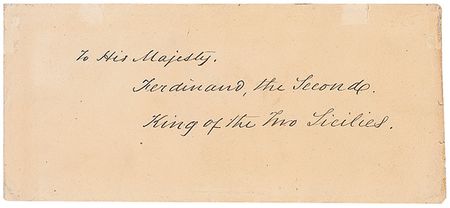 To His Majesty.
Ferdinand, the Second.
King of the Two Sicilies.